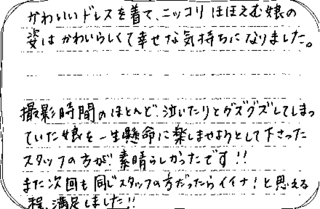 かわいいドレスを着て、ニッコリほほえむ娘の
姿はかわいらしくて幸せな気持ちになりました。
撮影時間のほとんど泣いたりとグズグズしてしまっ
ていた娘を一生懸命に楽しませようとして下さった
スタッフの方が素晴らしかったです!!
また次回も同じスタッフの方だったらイイナ!と思える
程、満足しました!!